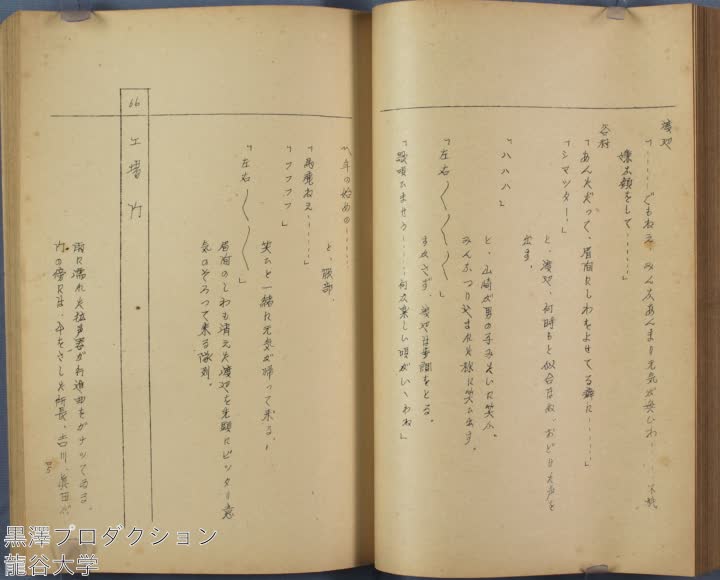 渡辺
「……でもねえ、みんなあんまり元気が無いわ……不機
嫌な顔をして……」
谷村
「あんただって、眉間にしわをよせてる癖に……」
「シマッター！」
と、渡辺、何時もと似合はぬ、おどけた声を
出す。
「ハハハ」
と、山崎が男の子みたいに笑ふ。
みんなつり込まれた様に笑ひ出す。
「左右〱〱〱」
すかさず、渡辺は歩調をとる。
「鼓吹しませう……何か楽しい唄がいゝわね」
「年の始めの……
と、服部。
「馬鹿ねえ……」
「フフフフ」
笑ひと一緒に元気が帰って来る。
「左右〱〱〱」
眉間のしわも消えた渡辺を先頭にピッタリ意
気のそろって来る隊列。
66 工場内
雨に濡れた拡声器が行進曲をガナッてゐる。
門の傍には、傘をさした所長、吉川、真田が
黒澤プロダクション
龍谷大学